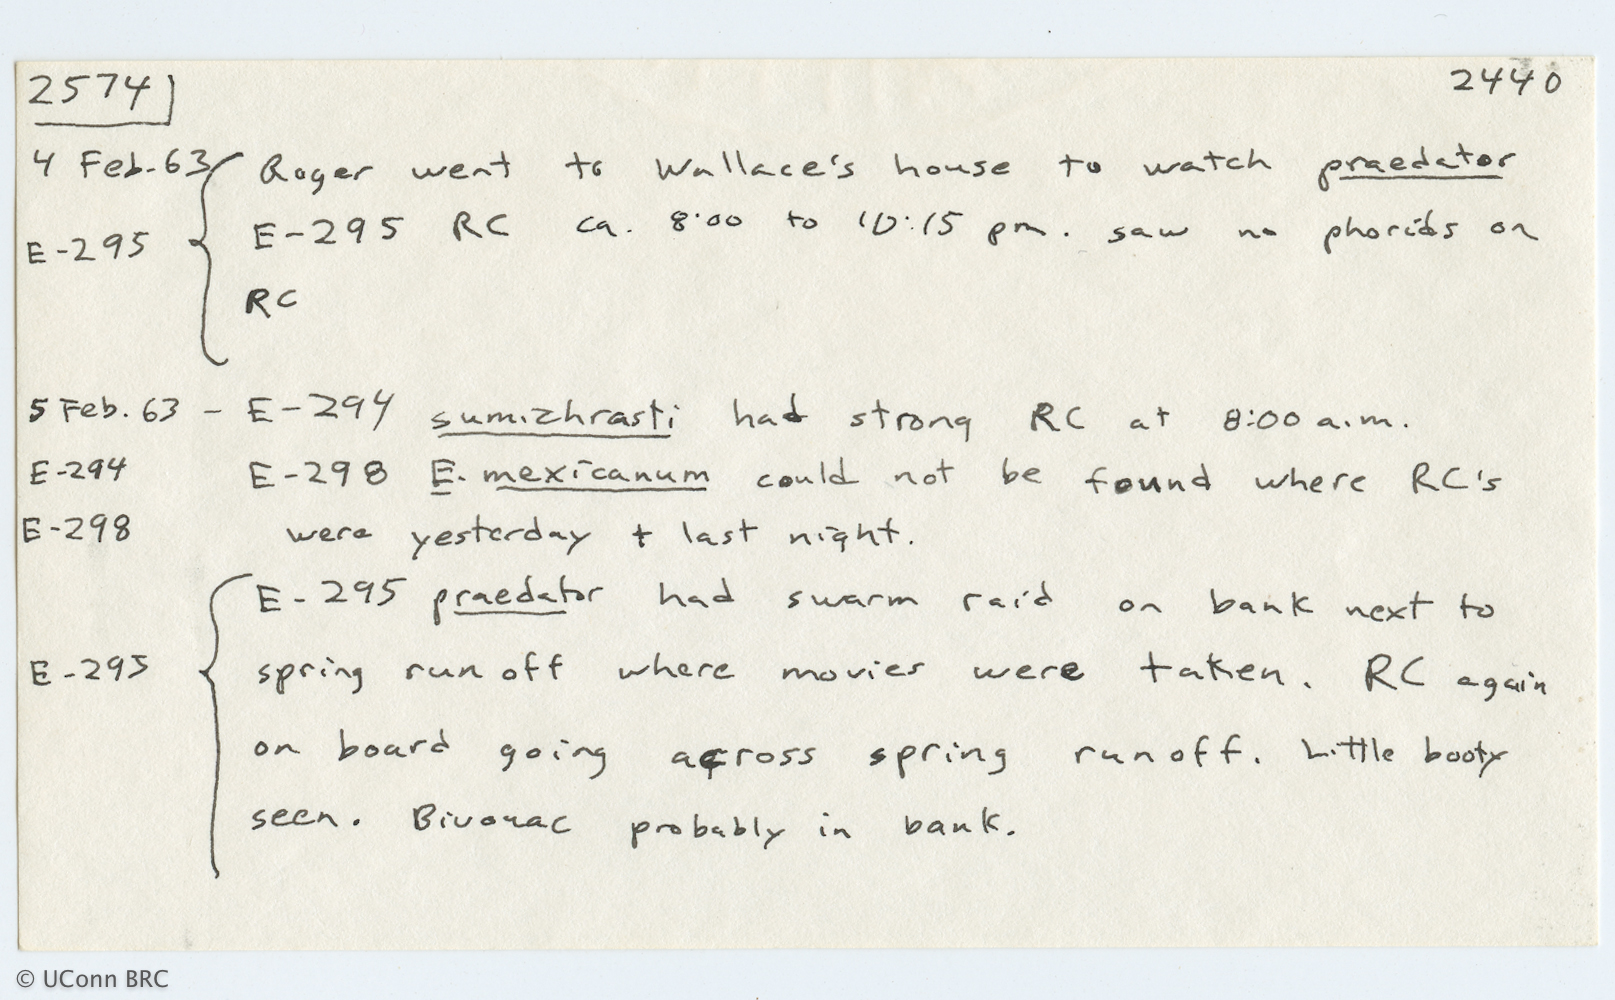 2574 2440
4 Feb. 63 Roger went to Wallace's house to watch praedator
E-295 E-295 RC ca. 8:00 to 10:15 pm. saw no phorids on
RC
5 Feb. 63 - E-294 sumichrasti had strong RC at 8:00 a.m.
E-294 E-298 E. mexicanum could not be found where RC's
E-298 were yesterday + last night.
E-295 praedator had swarm raid on bank next to
E-295 spring run off where movies were taken. RC again
on board going across spring runoff. Little booty
seen. Bivouac probably in bank.
© UConn BRC